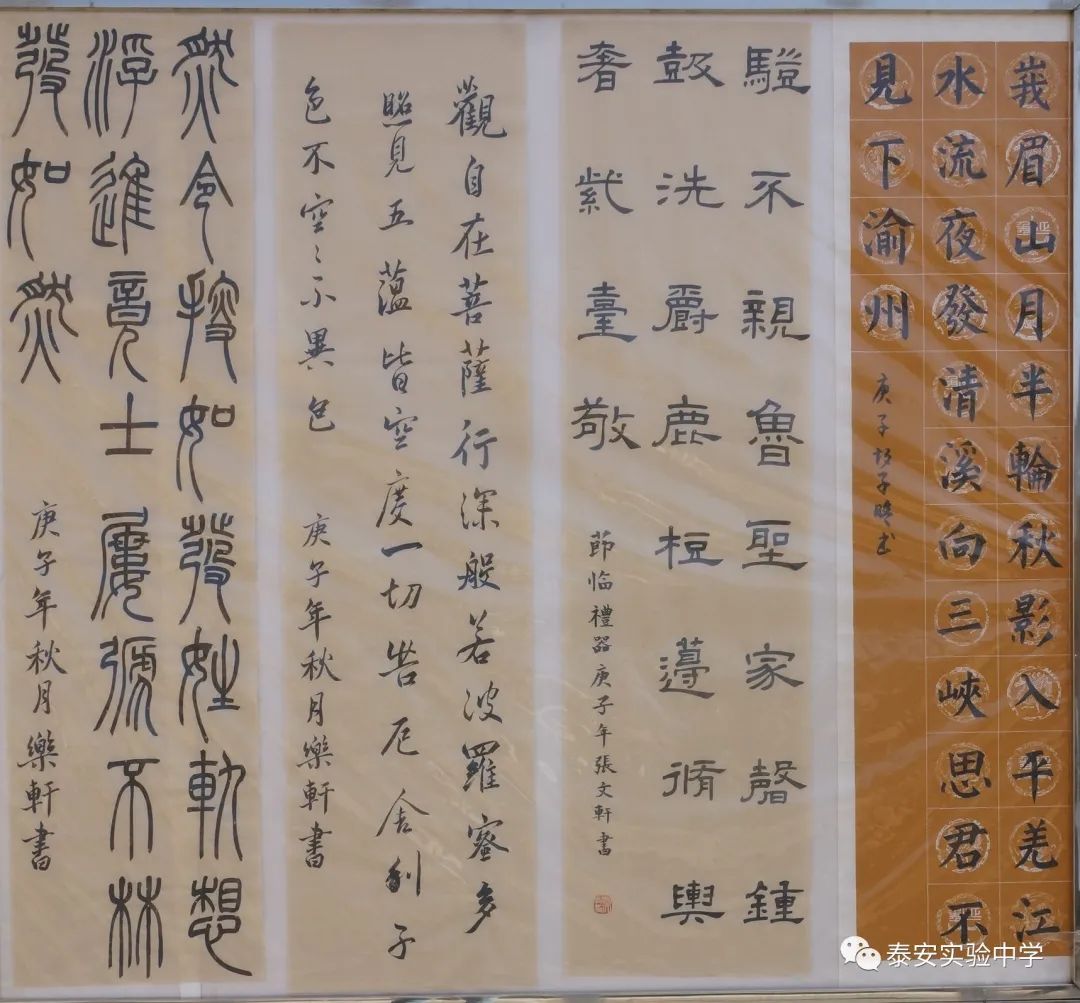 峩眉山月半輪秋影入平羌江
水流夜發清溪向三峽思君不
見下渝州
庚子 子 書
不親魯聖家磬鍾
鼓洗爵鹿籩脩輿
奢紫臺敬
節臨禮器庚子年張文軒書
觀自在菩薩行深般若波羅蜜多
照見五蘊皆空度一切苦厄舍利子
色不空〻不異色
庚子年秋月樂軒書
然令如發妙軌想
浮進竟士屢不林
發如然
庚子年秋月樂軒書
泰安实验中学